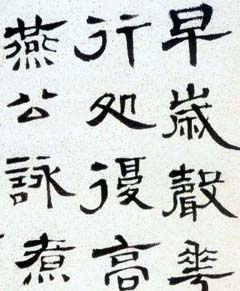 早歲聲華
行処復高
燕公詠煮